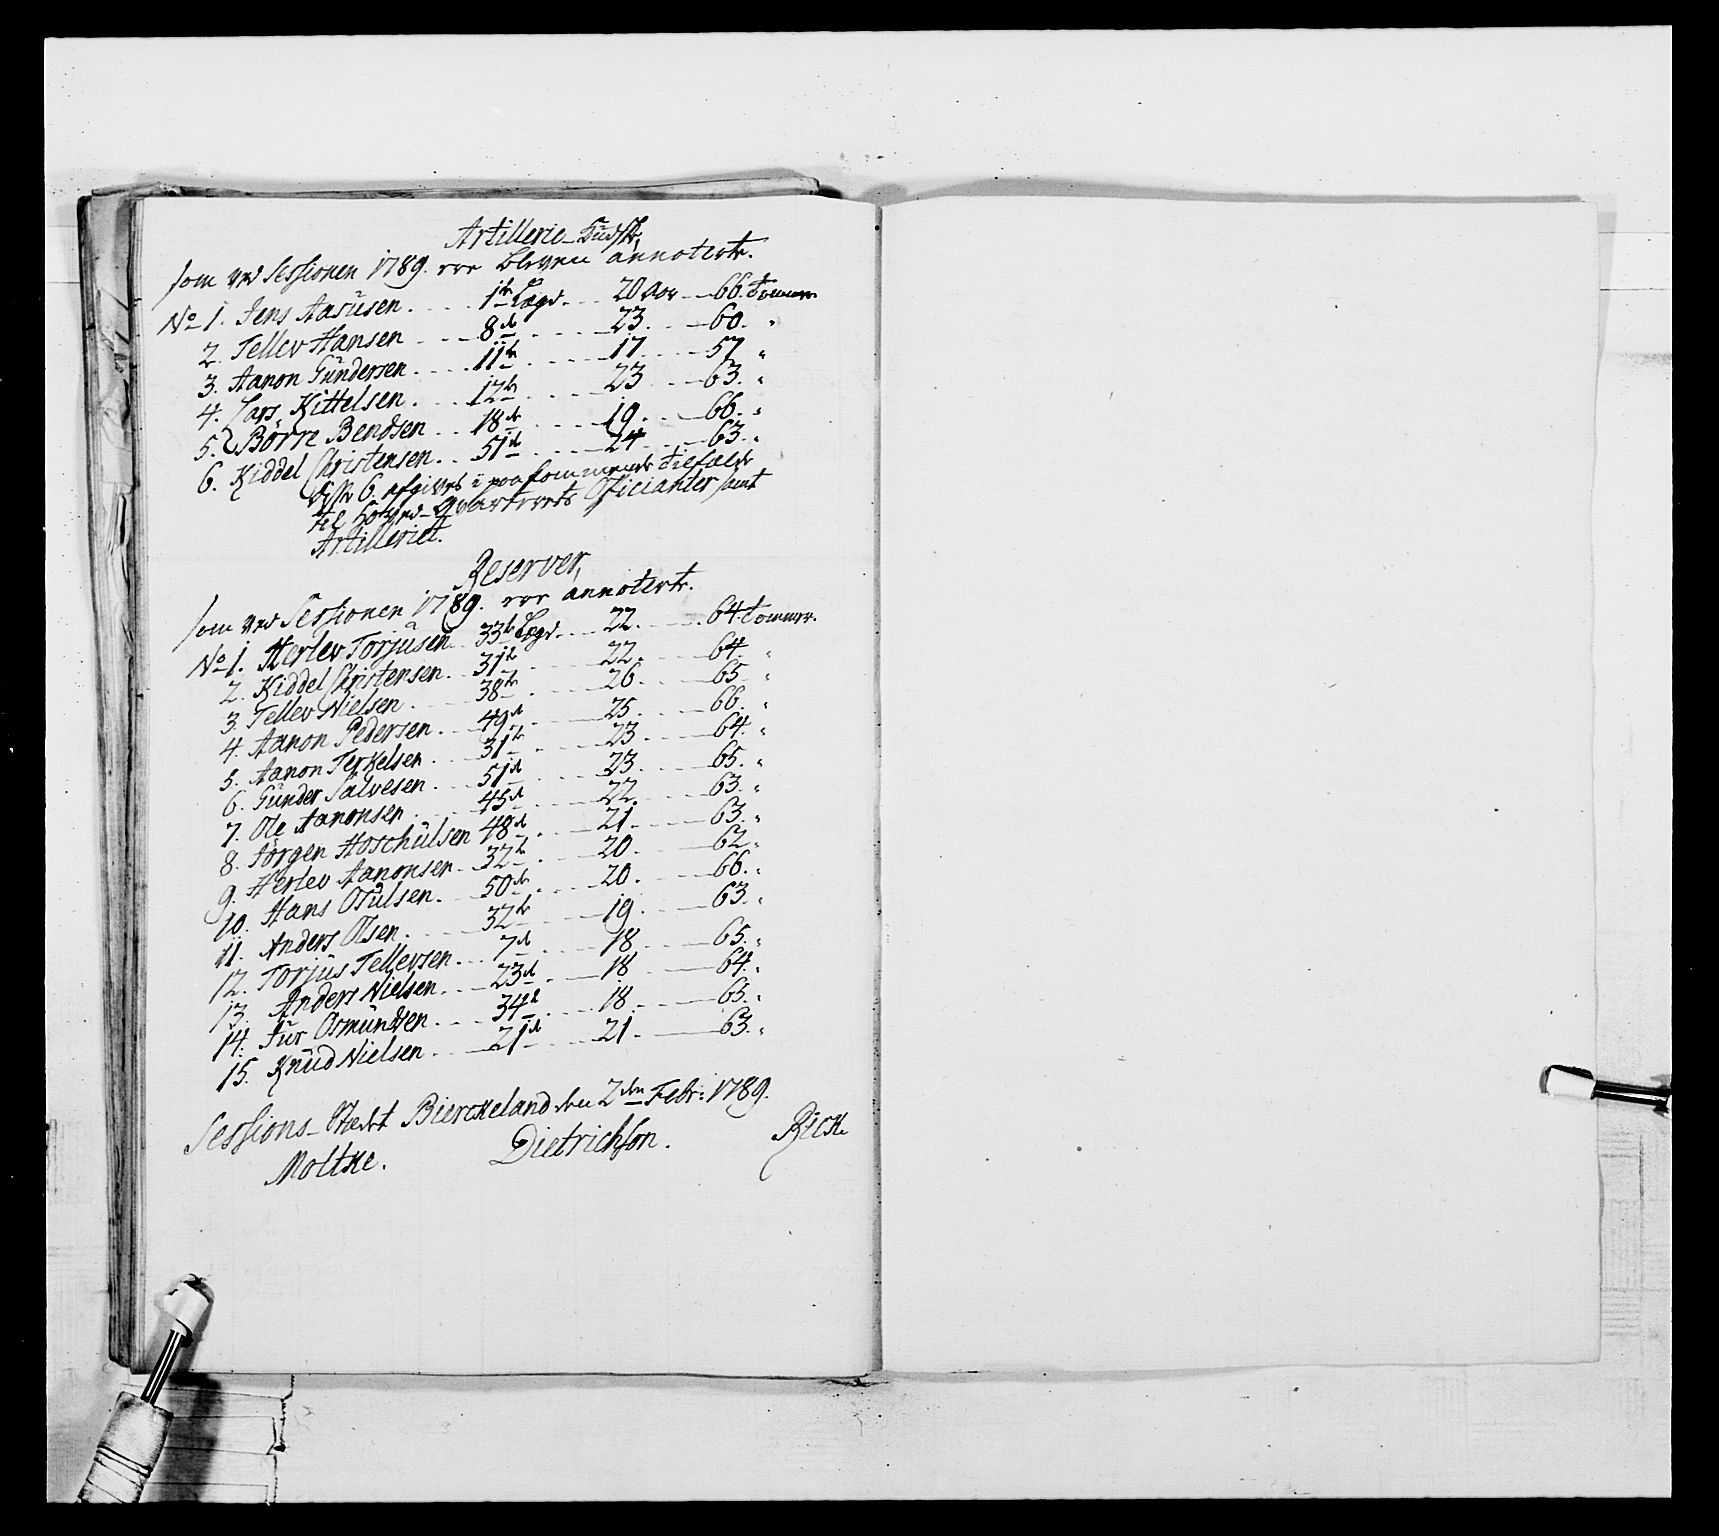 Artillerie-Kudske,
som ved Sessionen 1789. ere bleven annoterte.
No 1. Jens Aasüsen. 1te Lægd. 20 Aar 66. Tommer
2. Tellev Hansen 8de 23. 60. "
3. Aanon Gündersen 11te 17. 57 "
4. Lars Kittelsen. 12te 23 63. "
5. Börre Bendsen 18de 19. 66. "
6. Kiddel Christensen. 51de 24 63. "
disse 6. afgives i paakommende Tilfælde
til Hoved-Qvarterets Oficianter samt
Artilleriet.
Reserver,
som ved Sessionen 1789. ere annoterte.
No 1. Herlev Torjüsen 33te Lægd. 22. 64. Tommer.
2. Kiddel Christensen. 31te 22. 64. "
3. Tellev Nielsen 38te 26. 65 "
4. Aanon Pedersen. 49de 25. 66. "
5. Aanon Terkelsen 31te 23. 64. "
6. Günder Salvesen. 51de 23. 65. "
7. Ole Aanonsen 45de 22. 63. "
8. Jörgen Hoschülsen 48de 21. 63. "
9. Herlev Aanonsen. 32te 20. 62 "
10. Hans Osülsen. 50de 20. 66. "
11. Anders Olsen. 32te 19. 63. "
12. Torjüs Tellevsen. 7de 18. 65. "
13. Anders Nielsen. 23de 18 64. "
14. Jür Osmündsen. 34te 18. 65. "
15. Knüd Nielsen. 21de 21. 63. "
Sessions-Stædet Bierckeland den 2den Febr: 1789.
Moltke. Dietrichson. Rick